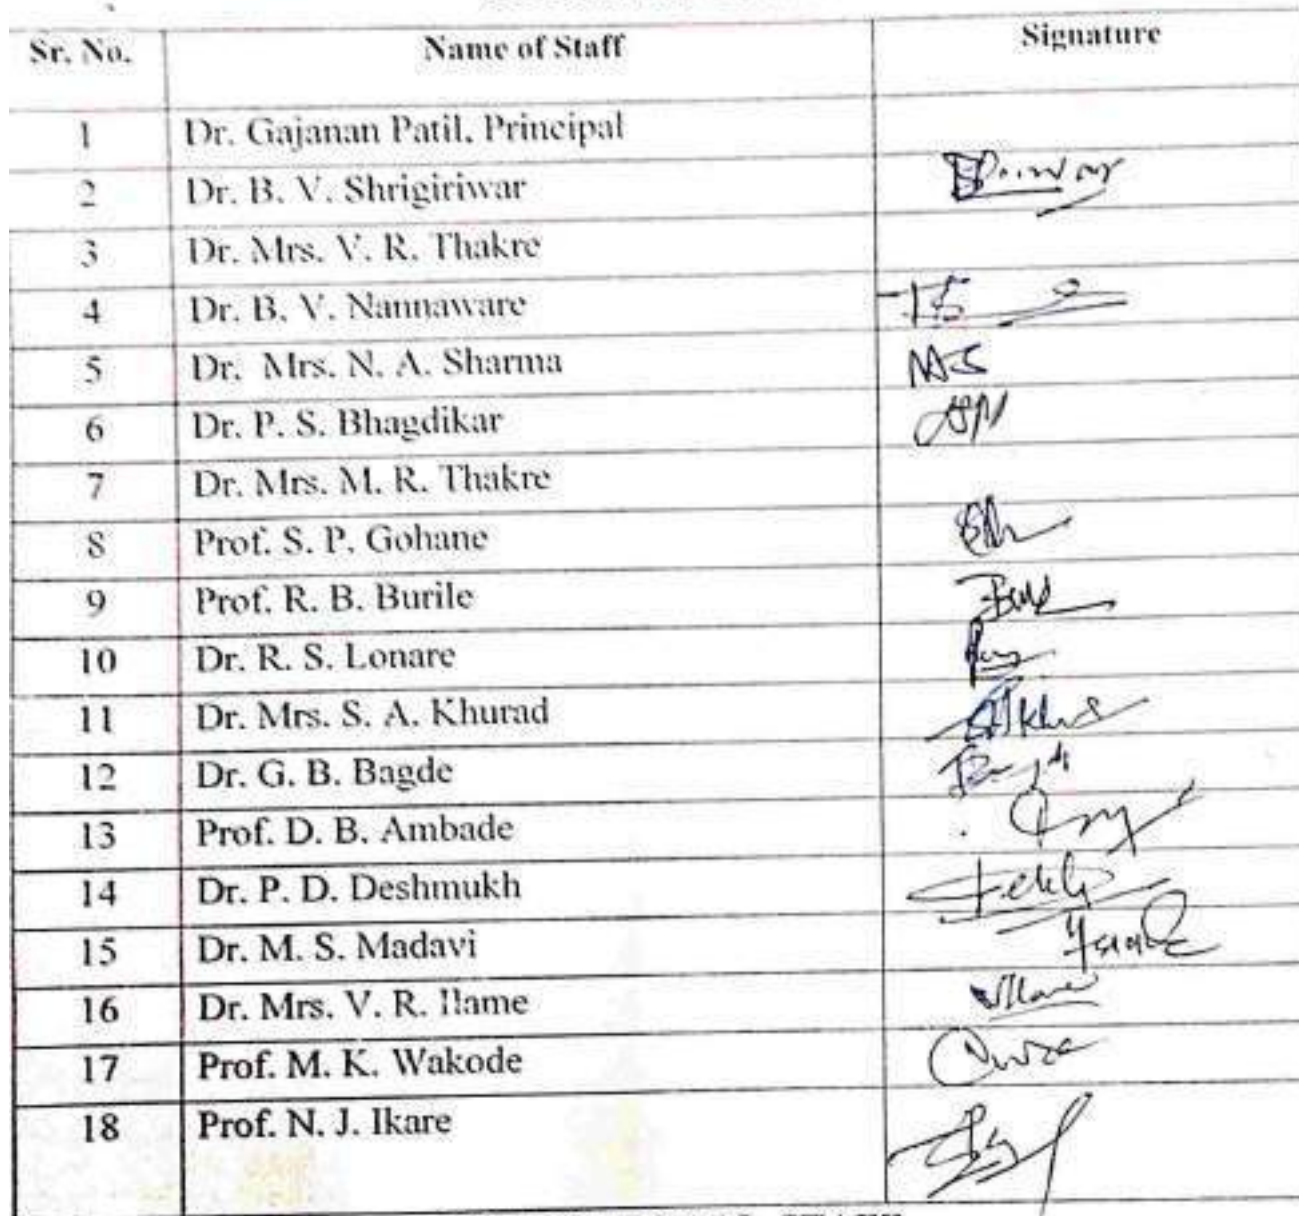 Sr. No. Name of Staff Signature
1 Dr. Gajanan Patil, Principal
2 Dr. B. V. Shrigiriwar
3 Dr. Mrs. V. R. Thakre
4 Dr. B. V. Nannaware
5 Dr. Mrs. N. A. Sharma
6 Dr. P. S. Bhagdikar
7 Dr. Mrs. M. R. Thakre
8 Prof. S. P. Gohane
9 Prof. R. B. Burile
10 Dr. R. S. Lonare
11 Dr. Mrs. S. A. Khurad
12 Dr. G. B. Bagde
13 Prof. D. B. Ambade
14 Dr. P. D. Deshmukh
15 Dr. M. S. Madavi
16 Dr. Mrs. V. R. Ilame
17 Prof. M. K. Wakode
18 Prof. N. J. Ikare